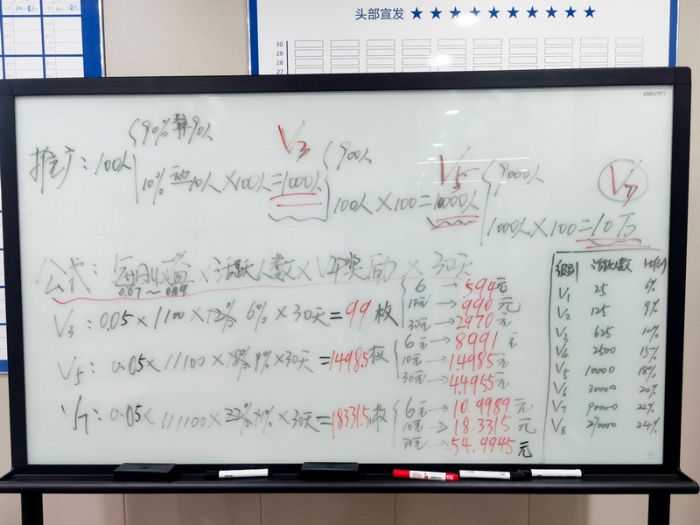 头部宣发 ★★★★★★★★★★
30
29
28
deli得力
90%静90人
推广：100人
10%动10人×100人=1000人
V3
900人
100人×100=10000人
V5
9000人
1000人×100=10万
V7
公式：每日收益×活跃人数×V享奖励×30天
0.07~0.09
V3：0.05×1100×12% 6%×30天=99枚
6→594元
10元→990元
30元→2970元
V5：0.05×11100×18% 9%×30天=1498.5枚
6元→8991元
10元→14985元
30元→44955元
V7：0.05×111100×22% 11%×30天=18331.5枚
6元→10.9989元
10元→18.3315元
30元→54.9945元
级别 活跃人数
V1 25 6%
V2 125 9%
V3 625 12%
V4 2500 15%
V5 10000 18%
V6 30000 20%
V7 90000 22%
V8 270000 24%